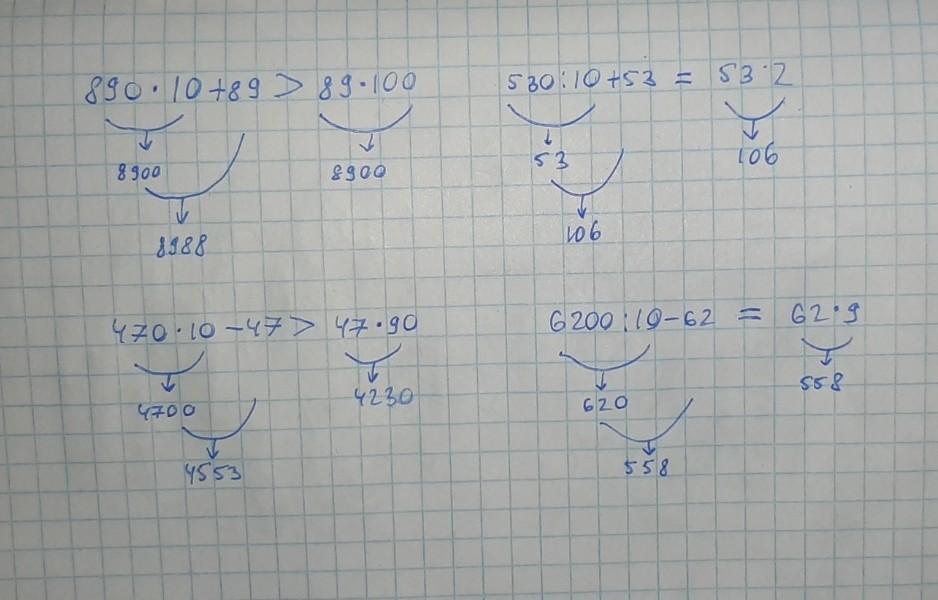 890·10+89 > 89·100
8900
8900
8988
530:10+53 = 53·2
53
106
106
470·10-47 > 47·90
4700
4230
4553
6200:10-62 = 62·9
620
558
558